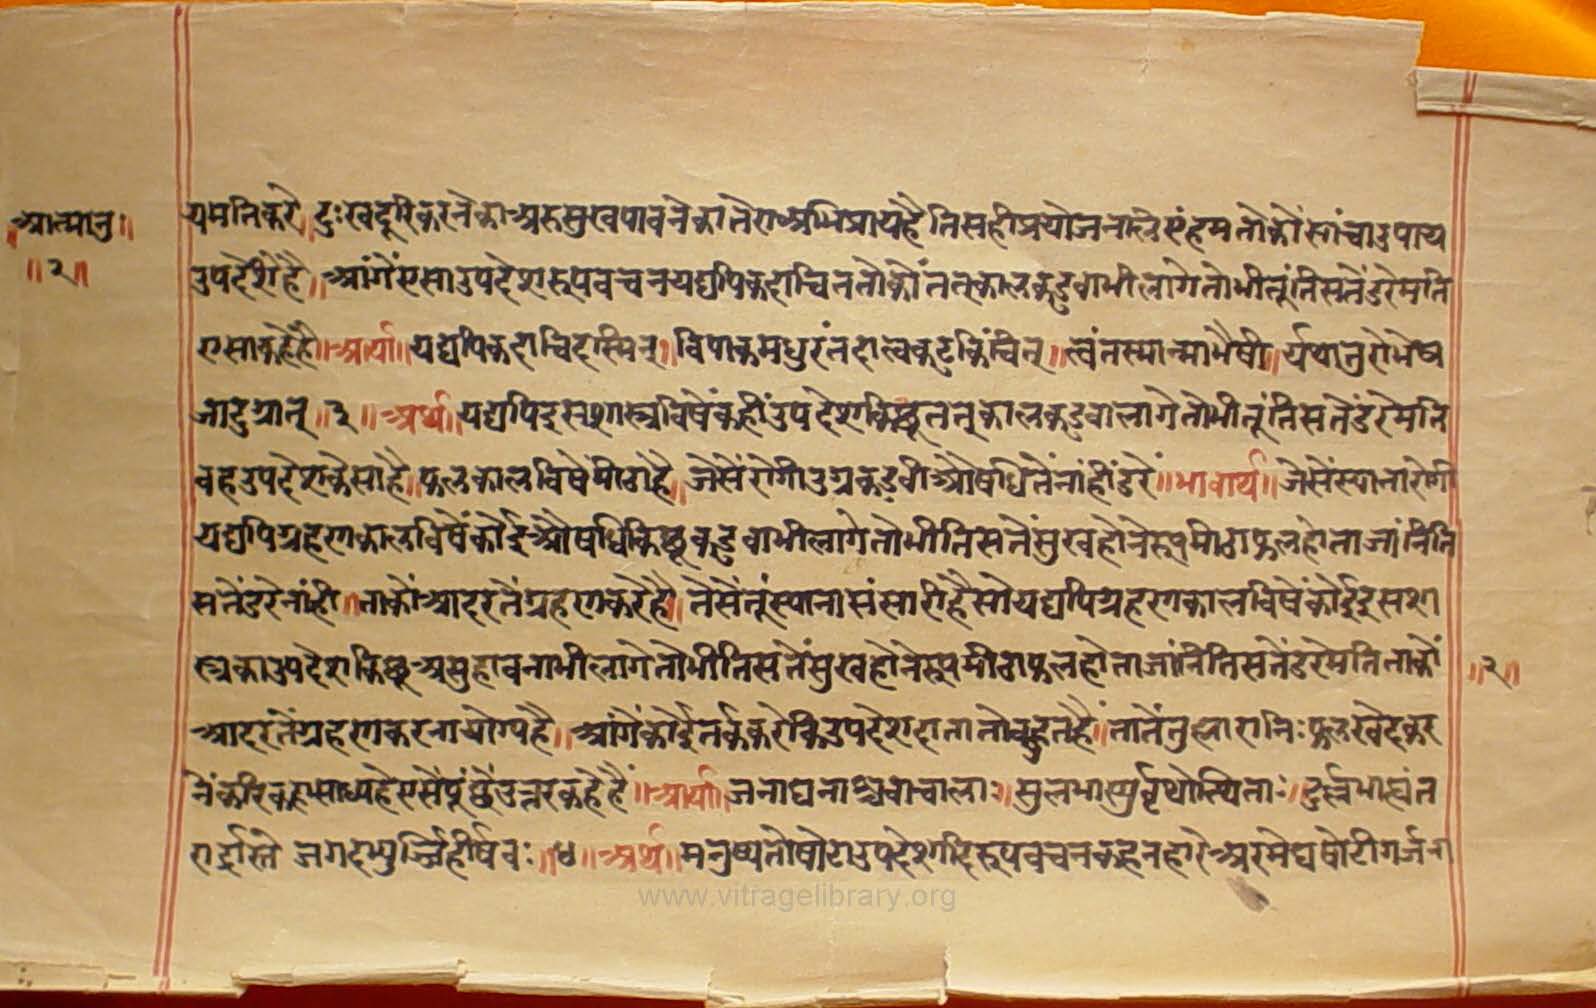 आत्मानु॥
॥२॥
यमतिकरो दुःखदूरिकरनेका अरुसुखपावनेका तेरा अभिप्रायहै तिसहीप्रयोजननालेएंहमतोकौंसांचाउपाय
उपदेशेंहैं॥ आंगेंएसाउपदेशरूपवचनयद्यपिकदाचिततोकौंतत्कालकडुवाभीलागेतोभीतूंतिसतेंडरेमति
एसाकहेंहैं॥आर्या॥ यद्यपिकदाचिदस्मिन्॥ विपाकमधुरंतदात्वकटुकिंचित्॥ त्वंतस्मान्माभैषी॥ र्यथातुरोभेष
जादुग्रात्॥३॥ अर्थ॥ यद्यपिइसशास्त्रविषेंकहींउपदेशकिछूतत्कालकडुवालागेतोभीतूंतिसतेंडरेमति
वहउपदेशकैसाहै॥ फलकालविषेंमीठाहै॥ जैसेंरोगीउग्रकडवीऔषधितेंनांहींडरे॥ भावार्थ॥ जैसेंस्यानारोगी
यद्यपिग्रहणकालविषेंकोईऔषधिकिछूकडुवाभीलागेतोभीतिसतेंसुखहोनेरूपमीठाफलहोताजांनिति
सतेंडरेनांही॥ ताकौंआदरतेंग्रहणकरेहै॥ तैसेंतूंस्यानासंसारीहैसोयद्यपिग्रहणकालविषेंकोईइसशा
स्त्रकाउपदेशकिछूअसुहावनाभीलागेतोभीतिसतेंसुखहोनेरूपमीठाफलहोताजांनितिसतेंडरेमतिताकौं
आदरतेंग्रहणकरनायोग्यहै॥ आंगेंकोईतर्ककरेकिउपदेशदातातोबहुतहैं॥ तातेंतुह्मारानिःफलखेदकर
नेंकीरकहासाध्यहेएसैंपूंछैंउत्तरकहेहैं॥ आर्या॥ जनाघनाश्चवाचालाः॥ सुलभास्युर्वृथोत्थिताः॥ दुर्ल्लभाह्यंत
रार्द्रास्ते जगदभ्युर्ज्जिहीर्षवः॥४॥ अर्थ॥ मनुष्यतोषोटाउपदेशादिरूपवचनकहनहारेअरमेघषोटीगर्जना
॥२॥
www.vitragelibrary.org